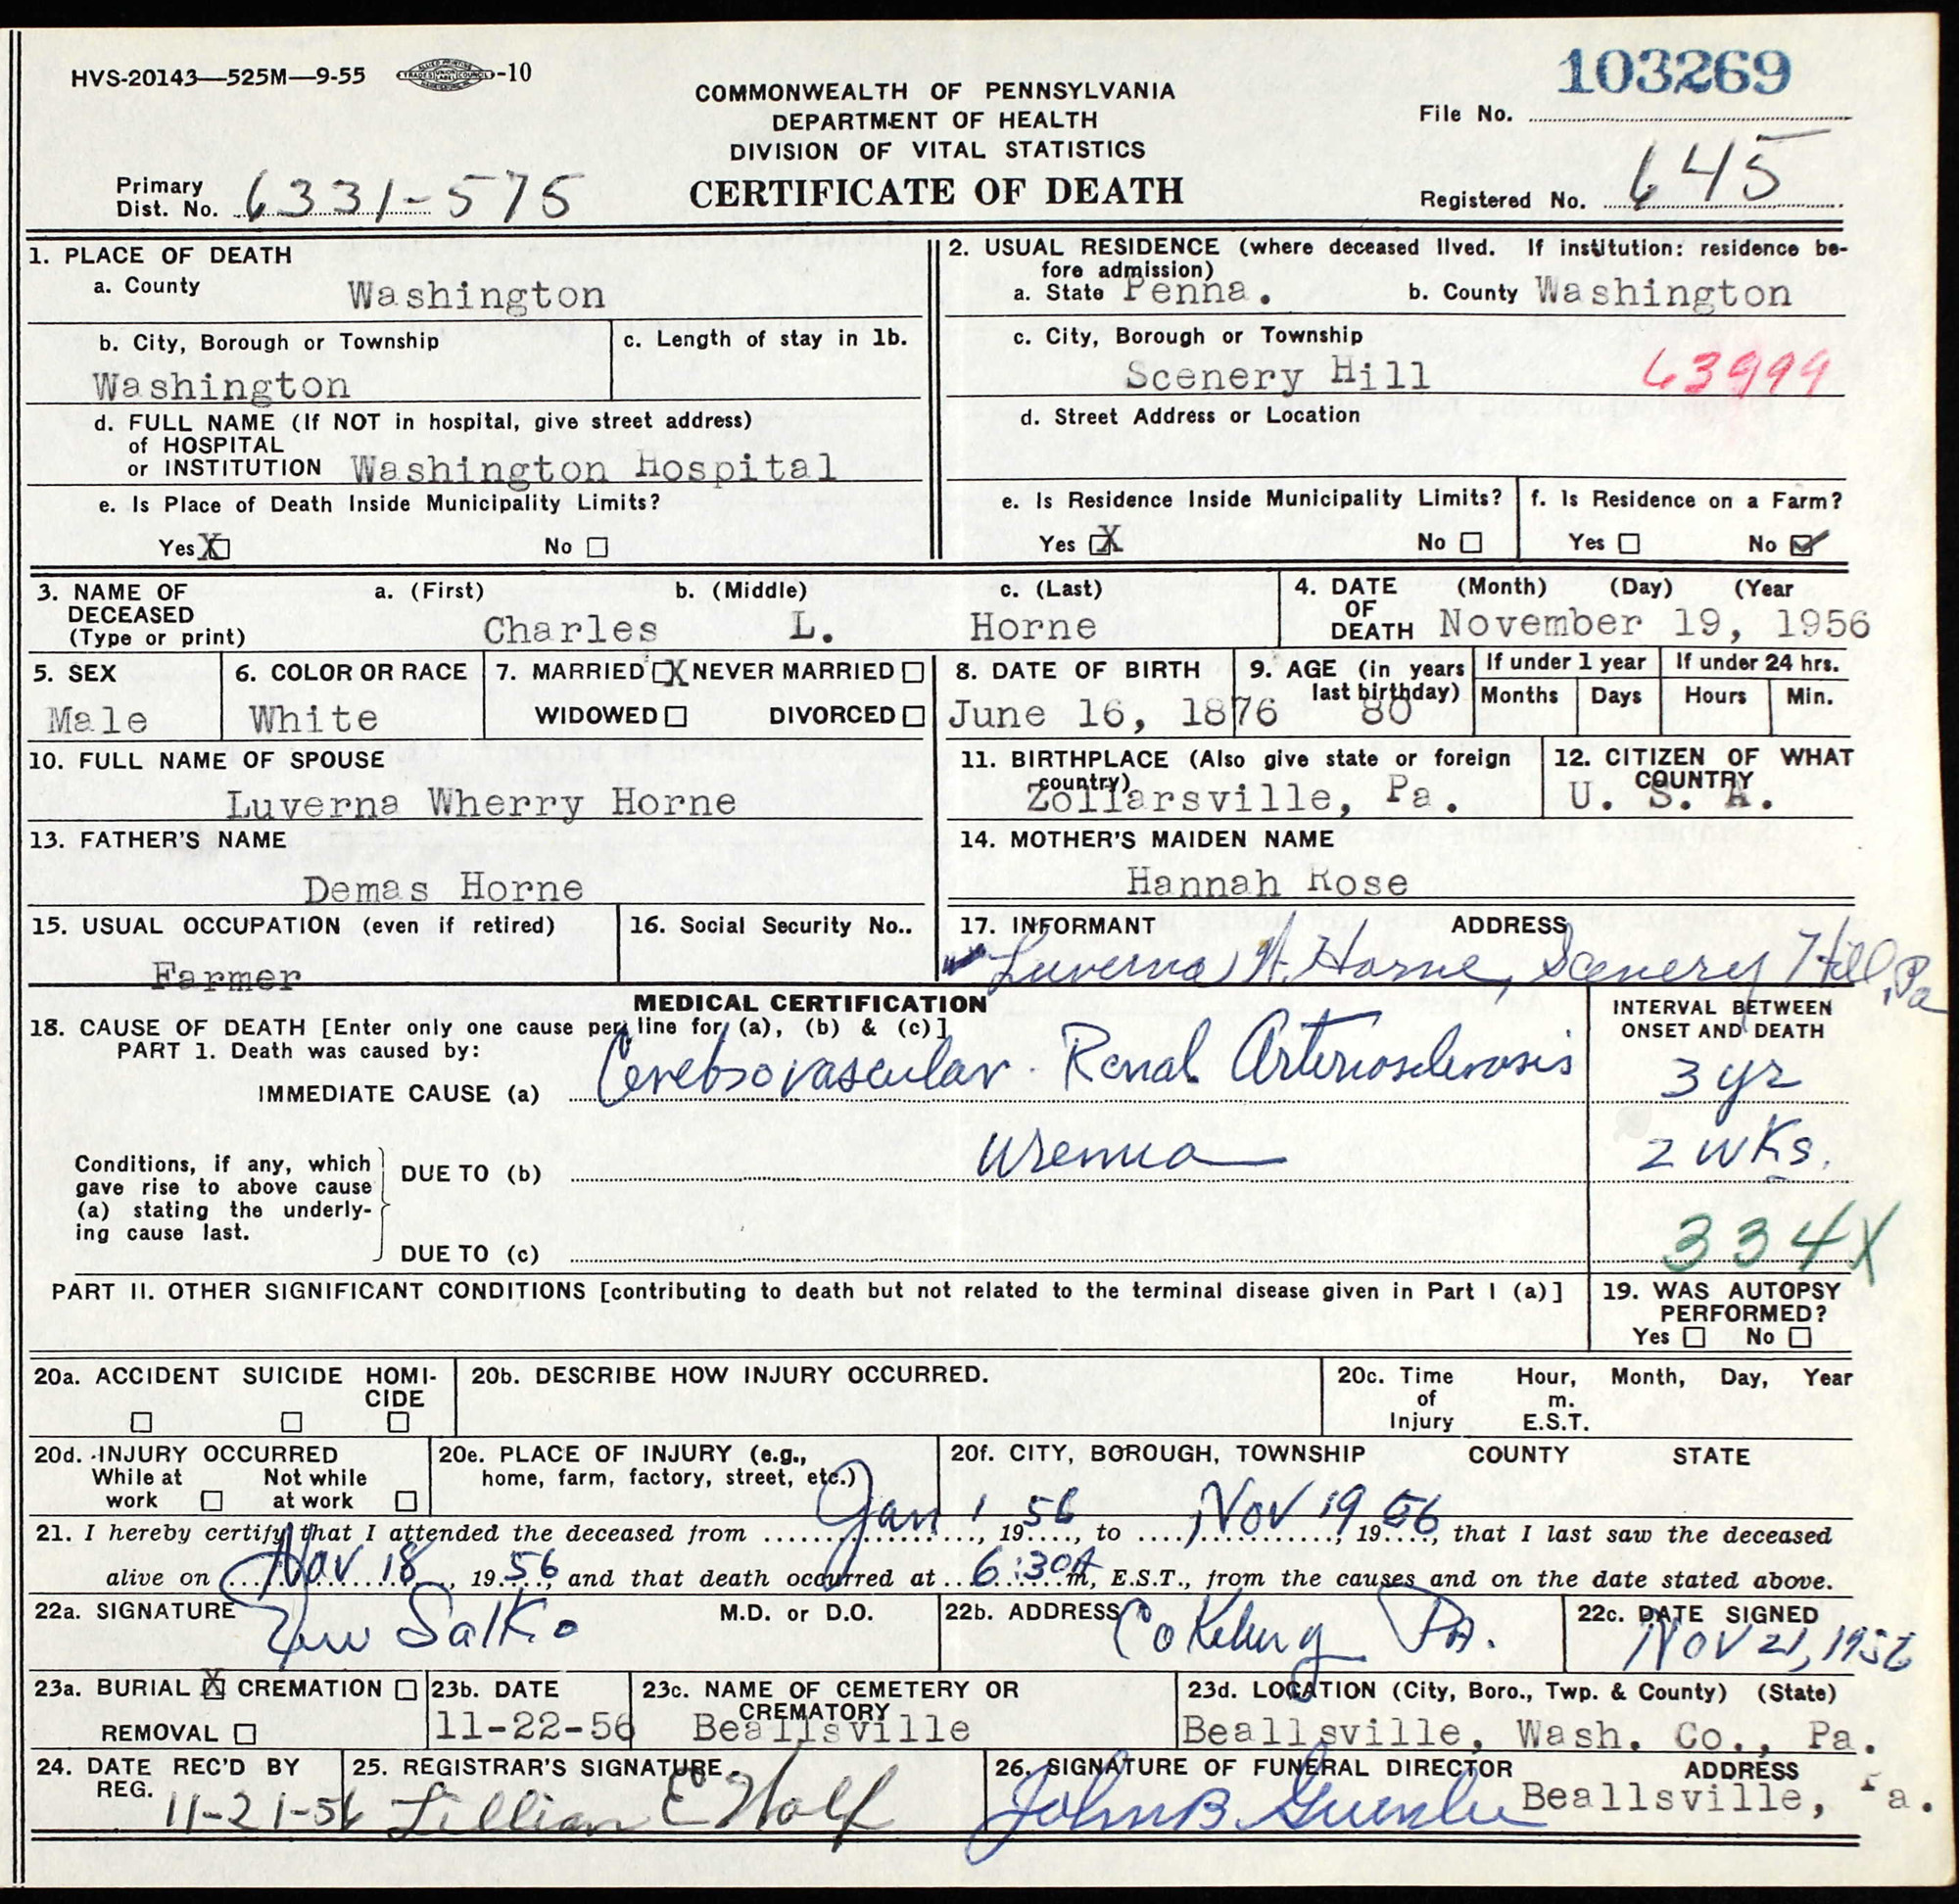 HVS-20143—525M—9-55 -10
103269
COMMONWEALTH OF PENNSYLVANIA
DEPARTMENT OF HEALTH
DIVISION OF VITAL STATISTICS
CERTIFICATE OF DEATH
File No.
Primary Dist. No. 6331-575
Registered No. 645
1. PLACE OF DEATH
a. County Washington
b. City, Borough or Township Washington
c. Length of stay in 1b.
d. FULL NAME (If NOT in hospital, give street address)
of HOSPITAL
or INSTITUTION Washington Hospital
e. Is Place of Death Inside Municipality Limits?
Yes X No
2. USUAL RESIDENCE (where deceased lived. If institution: residence be-
fore admission)
a. State Penna. b. County Washington
c. City, Borough or Township
Scenery Hill 63999
d. Street Address or Location
e. Is Residence Inside Municipality Limits?
Yes X No
f. Is Residence on a Farm?
Yes No ✓
3. NAME OF DECEASED (Type or print)
a. (First) b. (Middle) c. (Last)
Charles L. Horne
4. DATE OF DEATH (Month) (Day) (Year
November 19, 1956
5. SEX
Male
6. COLOR OR RACE
White
7. MARRIED X NEVER MARRIED
WIDOWED DIVORCED
8. DATE OF BIRTH
June 16, 1876
9. AGE (in years last birthday)
80
If under 1 year
Months Days
If under 24 hrs.
Hours Min.
10. FULL NAME OF SPOUSE
Luverna Wherry Horne
11. BIRTHPLACE (Also give state or foreign country)
Zollarsville, Pa.
12. CITIZEN OF WHAT COUNTRY
U. S. A.
13. FATHER'S NAME
Demas Horne
14. MOTHER'S MAIDEN NAME
Hannah Rose
15. USUAL OCCUPATION (even if retired)
Farmer
16. Social Security No..
17. INFORMANT ADDRESS
Luverna W. Horne, Scenery Hill, Pa
MEDICAL CERTIFICATION
18. CAUSE OF DEATH [Enter only one cause per line for (a), (b) & (c)]
PART 1. Death was caused by:
IMMEDIATE CAUSE (a) Cerebrovascular - Renal Arteriosclerosis
INTERVAL BETWEEN ONSET AND DEATH
3 yr
Conditions, if any, which
gave rise to above cause
(a) stating the underly-
ing cause last.
DUE TO (b) Uremia 2 wks.
DUE TO (c)
334X
PART II. OTHER SIGNIFICANT CONDITIONS [contributing to death but not related to the terminal disease given in Part I (a)]
19. WAS AUTOPSY PERFORMED?
Yes No
20a. ACCIDENT SUICIDE HOMI-
CIDE
20b. DESCRIBE HOW INJURY OCCURRED.
20c. Time of Injury Hour, m. E.S.T. Month, Day, Year
20d. INJURY OCCURRED
While at work Not while at work
20e. PLACE OF INJURY (e.g.,
home, farm, factory, street, etc.)
20f. CITY, BOROUGH, TOWNSHIP COUNTY STATE
21. I hereby certify that I attended the deceased from Jan 1, 1956, to Nov 19, 1956, that I last saw the deceased
alive on Nov 18, 1956, and that death occurred at 6:30A m, E.S.T., from the causes and on the date stated above.
22a. SIGNATURE Salko M.D. or D.O.
22b. ADDRESS Cokeburg Pa.
22c. DATE SIGNED Nov 21, 1956
23a. BURIAL X CREMATION
REMOVAL
23b. DATE
11-22-56
23c. NAME OF CEMETERY OR CREMATORY
Beallsville
23d. LOCATION (City, Boro., Twp. & County) (State)
Beallsville, Wash. Co., Pa.
24. DATE REC'D BY REG.
11-21-56
25. REGISTRAR'S SIGNATURE
Lillian E Wolf
26. SIGNATURE OF FUNERAL DIRECTOR ADDRESS
John B Beallsville, Pa.